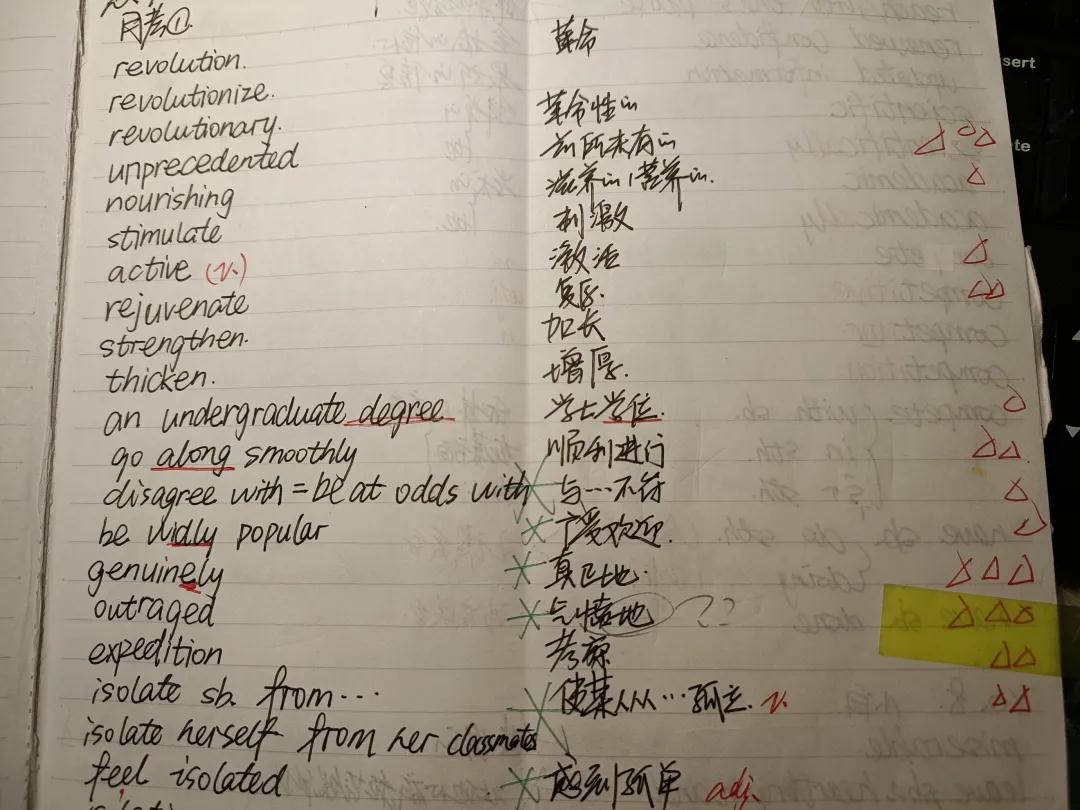 月考①
revolution. 革命
revolutionize.
revolutionary. 革命性的
unprecedented 前所未有的
nourishing 滋养的/营养的.
stimulate 刺激
active (v.) 激活
rejuvenate 复原.
strengthen. 加长
thicken. 增厚.
an undergraduate degree 学士学位.
go along smoothly 顺利进行
disagree with = be at odds with 与…不符
be widly popular 广受欢迎.
genuinely 真正地.
outraged 气愤地 ??
expedition 考察
isolate sb. from… 使某人从…孤立. v.
isolate herself from her classmates
feel isolated 感到孤单 adj.
sert